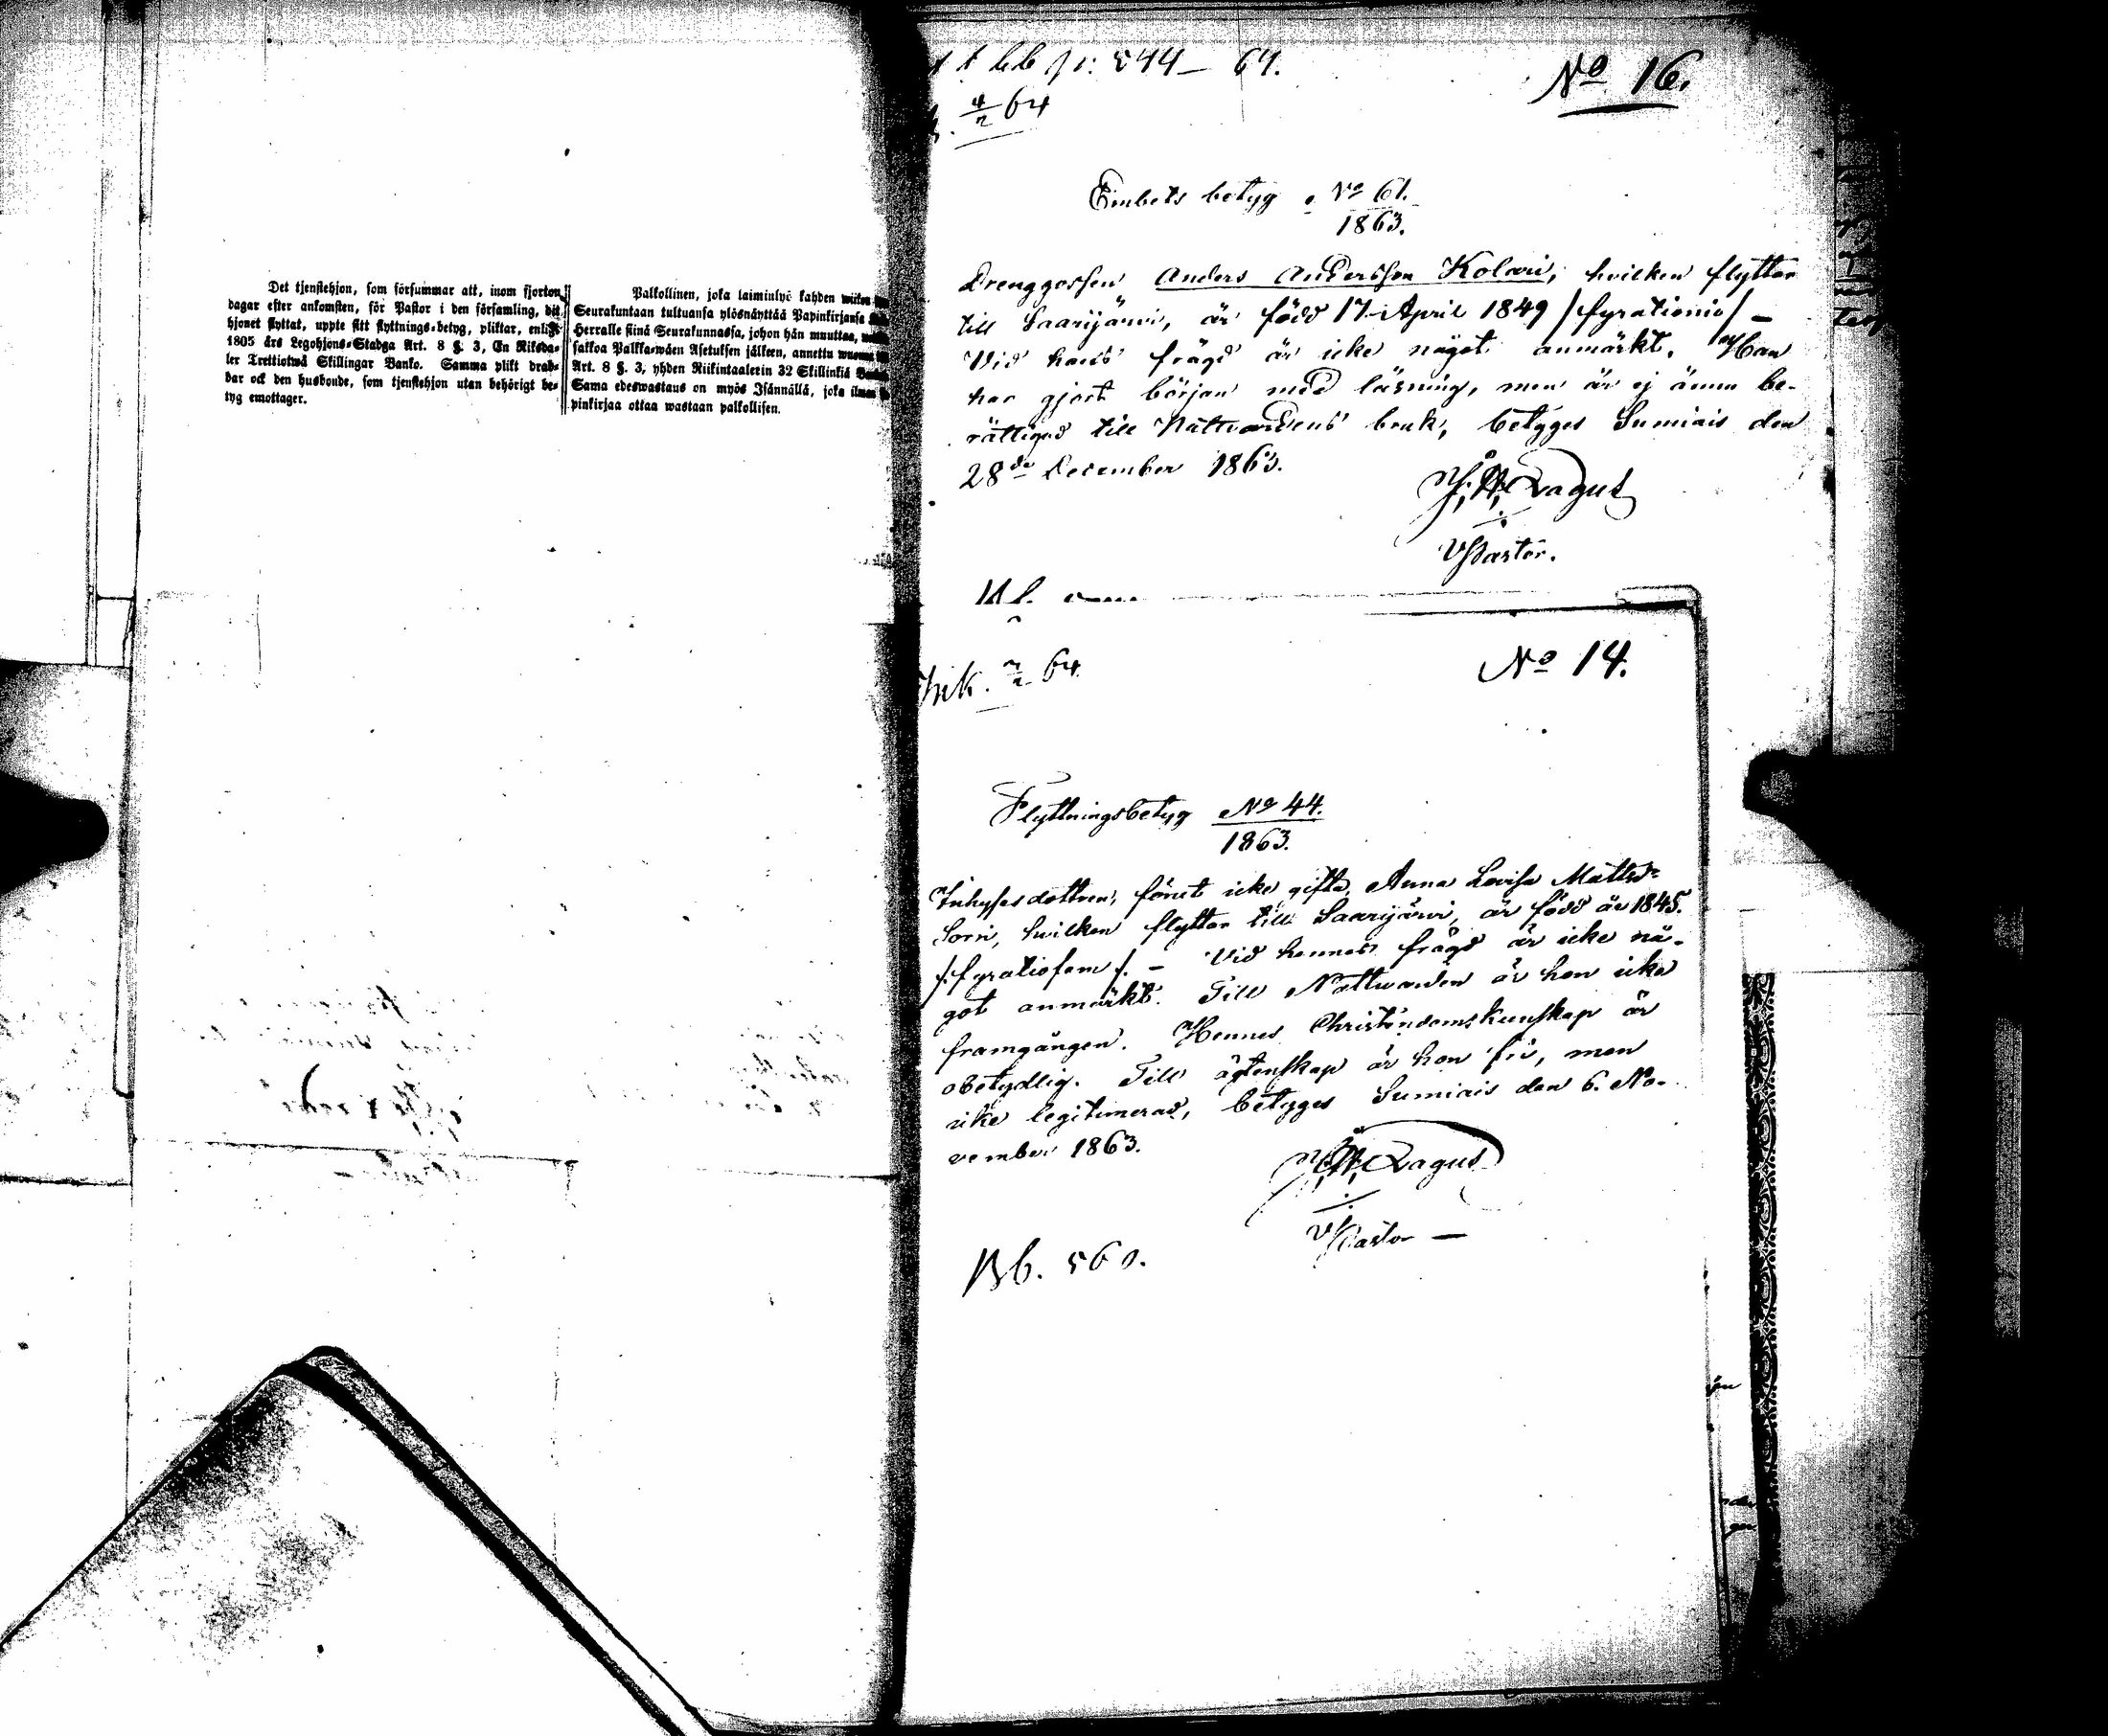 Det tjenstehjon, som försummar att, inom fjorton
dagar efter ankomsten, för Pastor i den församling, dit
hjonet flyttat, uppte sitt flyttnings-betyg, pliktar, enligt
1805 års Legohjons-Stadga Art. 8 §. 3, En Riksda-
ler Trettiotwå Skillingar Banko. Samma plikt drab-
bar ock den husbonde, som tjenstehjon utan behörigt be-
tyg emottager.
Palkollinen, joka laiminlyö kahden
Seurakuntaan tultuansa ylösnäyttää Papinkirjansa
Herralle siinä Seurakunnassa, johon hän muuttaa,
sakkoa Palkka-wäen Asetuksen jälkeen, annettu
Art. 8 §. 3, yhden Riikintaalerin 32 Skillinkiä
Sama edeswastaus on myös Isännällä, joka ilman
pinkirjaa ottaa wastaan palkollisen.
544 — 64.
4/2 64
No 16.
Embets betyg No 61.
1863.
Drenggossen Anders Andersson Kolari, hvilken flyttar
till Saarijärvi, är född 17 April 1849 /fyrationio/ —
Vid hans frägd är icke något anmärkt. Han
har gjort början med läsning, men är ej ännu be-
rättigad till Nattvardens bruk, betyges Sumiais den
28de December 1863.
Lagus
V Pastor.
64
No 14.
Flyttningsbetyg No 44.
1863.
Inhysesdottren, förut icke gifta, Anna Lovisa Mattsd:r
Sorri, hvilken flyttar till Saarijärvi, är född år 1845.
/:fyratiofem:/. — Vid hennes frägd är icke nå-
got anmärkt. Till Nattvarden är hon icke
framgången. Hennes Christendomskunskap är
obetydlig. Till ägtenskap är hon fri, men
icke legitimerad, betyges Sumiais den 6. No-
vember 1863.
Lagus
V Pastor —